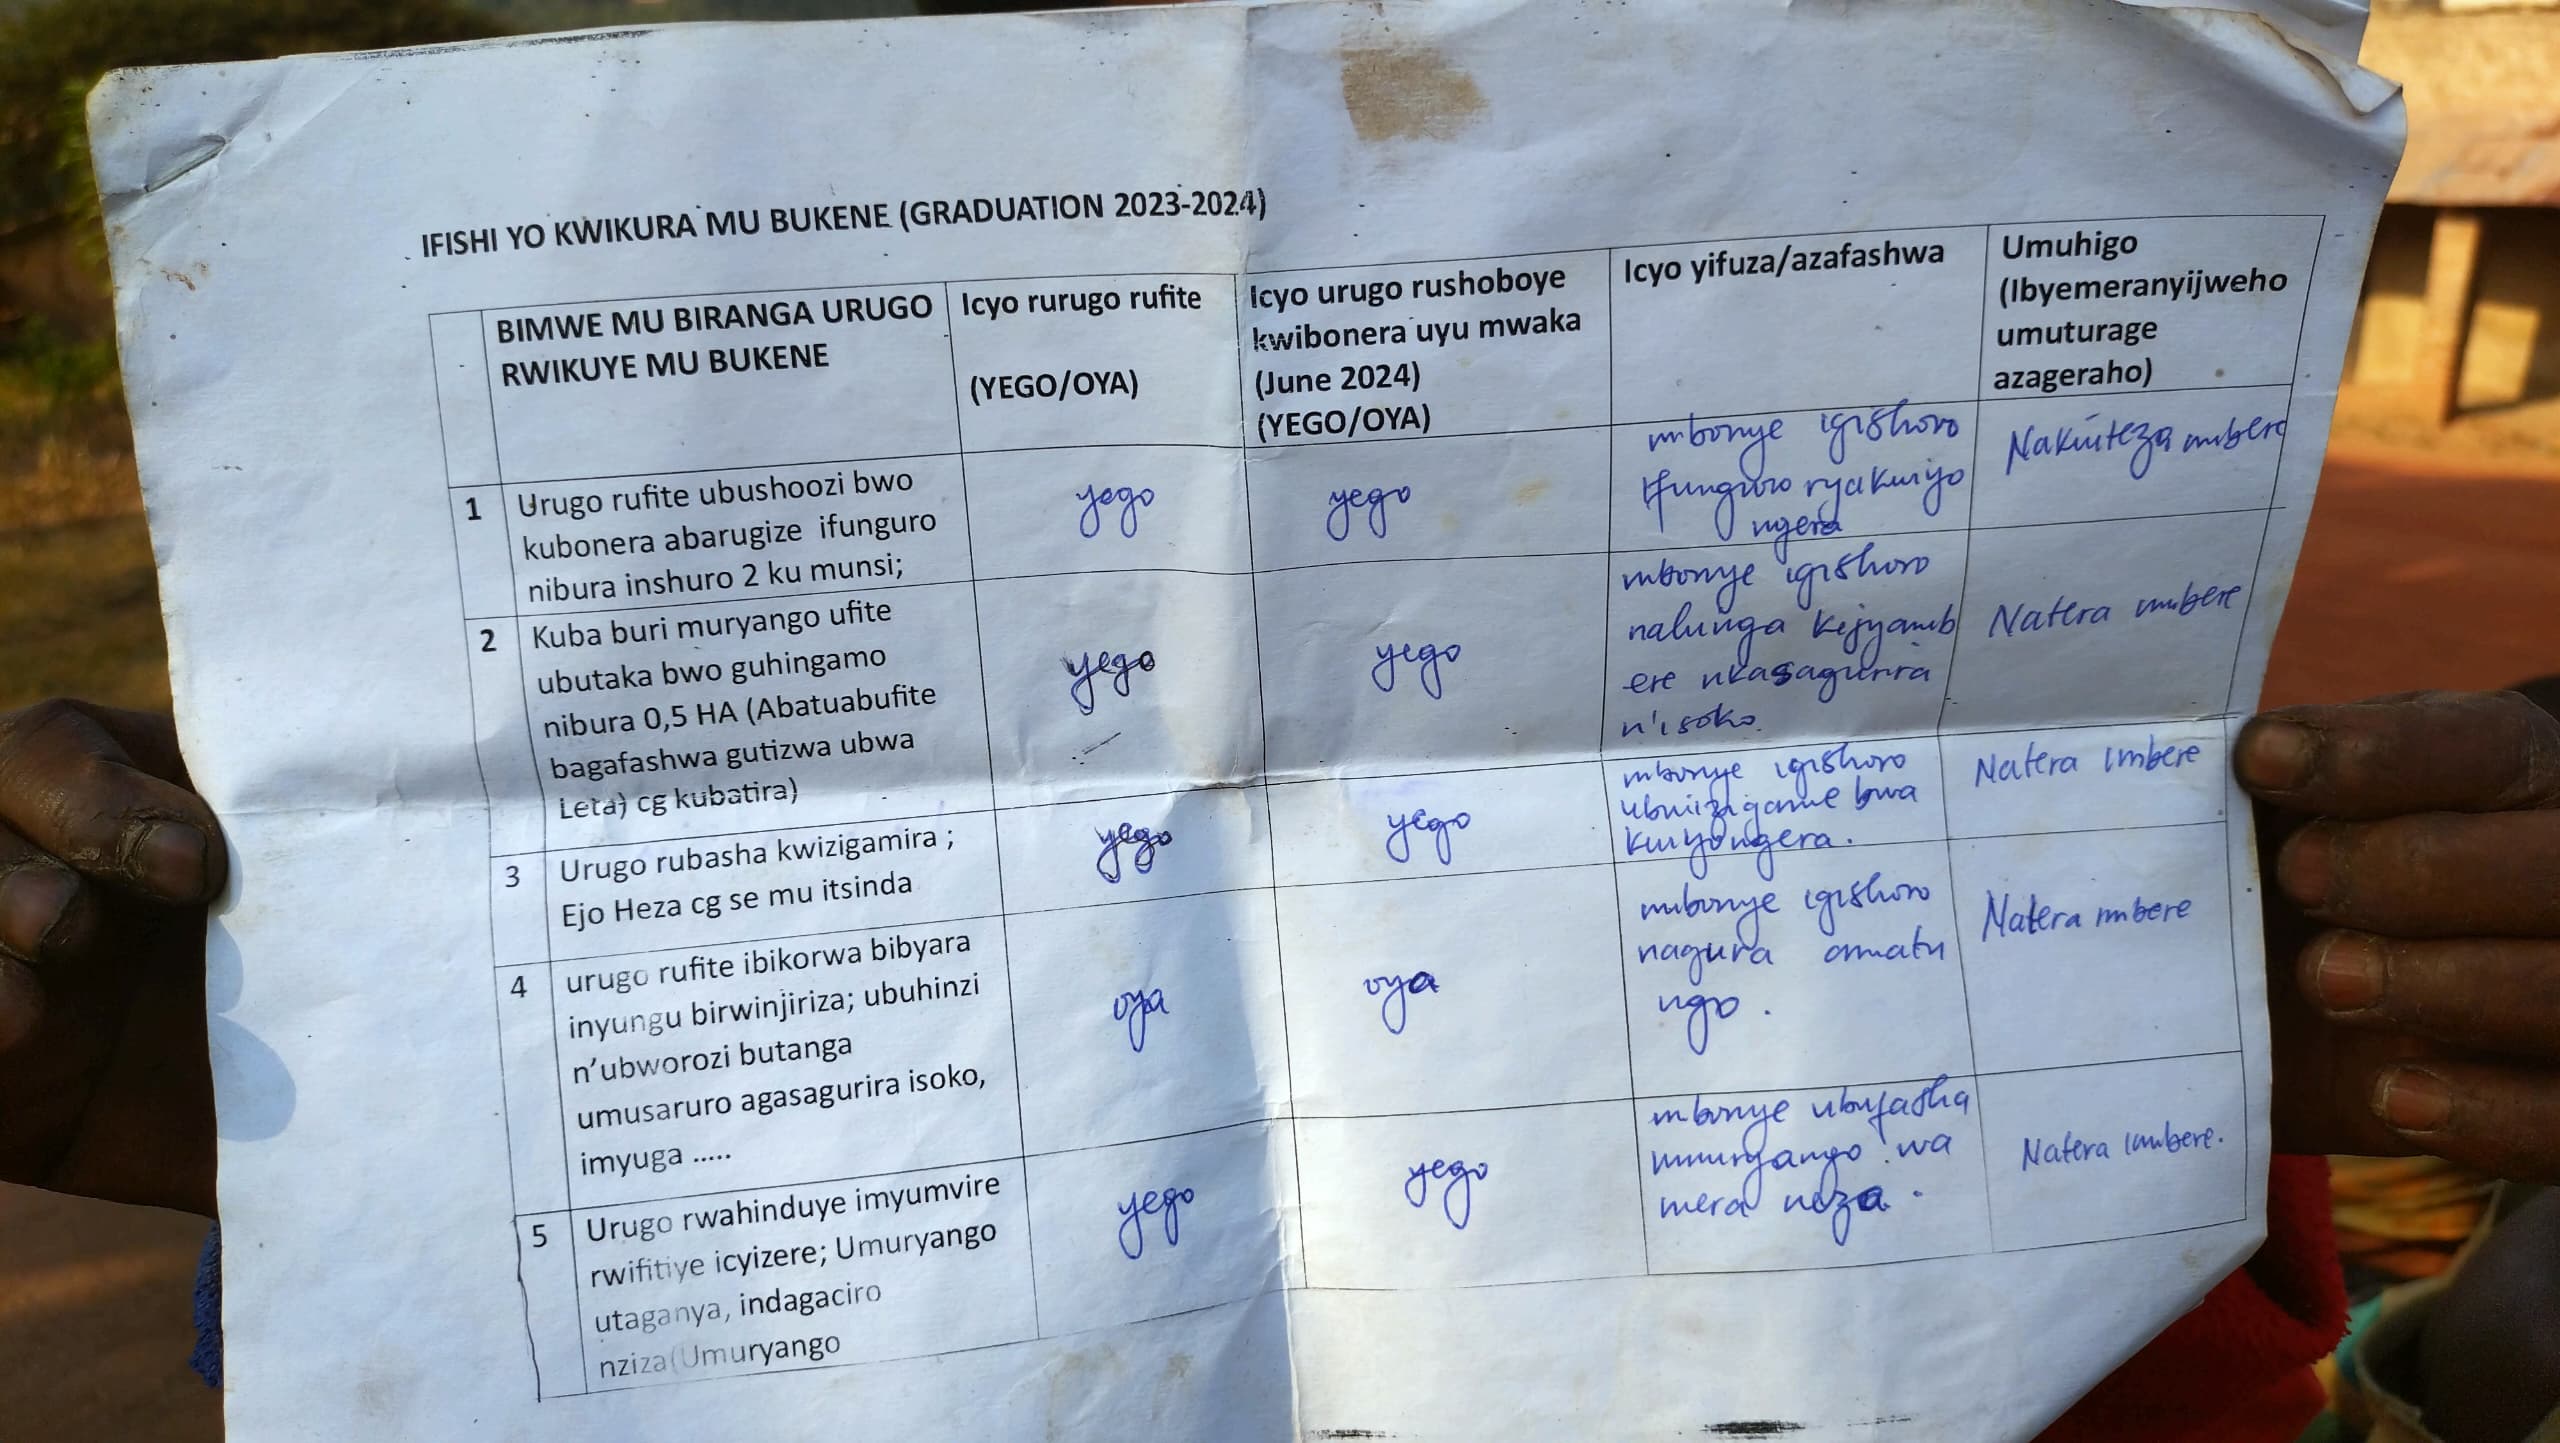 IFISHI YO KWIKURA MU BUKENE (GRADUATION 2023-2024)
BIMWE MU BIRANGA URUGO
RWIKUYE MU BUKENE
Icyo rurugo rufite
(YEGO/OYA)
Icyo urugo rushoboye
kwibonera uyu mwaka
(June 2024)
(YEGO/OYA)
Icyo yifuza/azafashwa
Umuhigo
(Ibyemeranyijweho
umuturage
azageraho)
1
Urugo rufite ubushoozi bwo
kubonera abarugize ifunguro
nibura inshuro 2 ku munsi;
yego
yego
mbonye igishoro
Ifunguro ryakwiyo
ngera
Nakwiteza imbere
2
Kuba buri muryango ufite
ubutaka bwo guhingamo
nibura 0,5 HA (Abatuabufite
bagafashwa gutizwa ubwa
Leta) cg kubatira)
yego
yego
mbonye igishoro
nahinga kijyamb
ere nkasagurira
n'isoko.
Natera imbere
3
Urugo rubasha kwizigamira ;
Ejo Heza cg se mu itsinda
yego
yego
mbonye igishoro
ubwizigame bwa
kwiyongera.
Natera imbere
4
urugo rufite ibikorwa bibyara
inyungu birwinjiriza; ubuhinzi
n'ubworozi butanga
umusaruro agasagurira isoko,
imyuga .....
oya
oya
mbonye igishoro
nagura amatu
ngo.
Natera imbere
5
Urugo rwahinduye imyumvire
rwifitiye icyizere; Umuryango
utaganya, indagaciro
nziza(Umuryango
yego
yego
mbonye ubufasha
umuryango wa
mera neza.
Natera imbere.